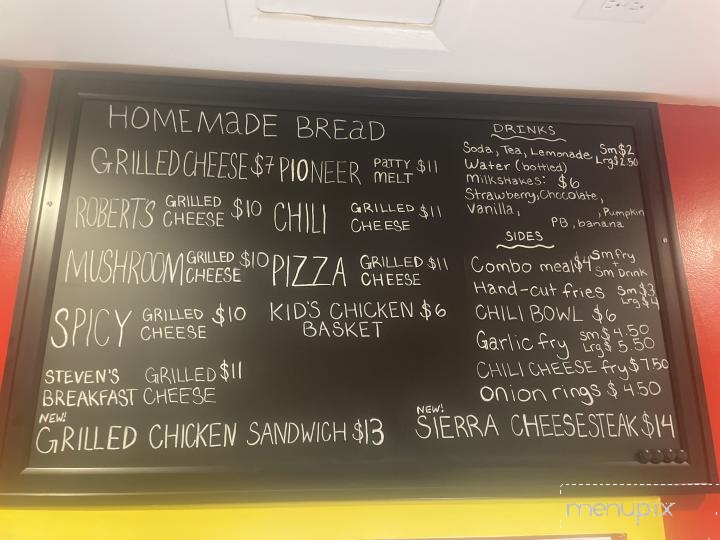 HOMEMADE BREAD
GRILLED CHEESE $7
PIONEER PATTY MELT $11
ROBERTS GRILLED CHEESE $10
CHILI GRILLED CHEESE $11
MUSHROOM GRILLED CHEESE $10
PIZZA GRILLED CHEESE $11
SPICY GRILLED CHEESE $10
KID'S CHICKEN $6
BASKET
STEVEN'S GRILLED $11
BREAKFAST CHEESE
NEW!
GRILLED CHICKEN SANDWICH $13
DRINKS
Soda, Tea, Lemonade Sm $2
Lrg $2.50
Water (bottled)
Milkshakes: $6
Strawberry, Chocolate,
Vanilla, , Pumpkin
PB, banana
SIDES
Combo meal $4 Sm fry
Sm Drink
Hand-cut fries Sm $3
Lrg $4
CHILI BOWL $6
Garlic fry Sm $4.50
Lrg $5.50
CHILI CHEESE fry $7.50
Onion rings $4.50
NEW!
SIERRA CHEESESTEAK $14
menupix